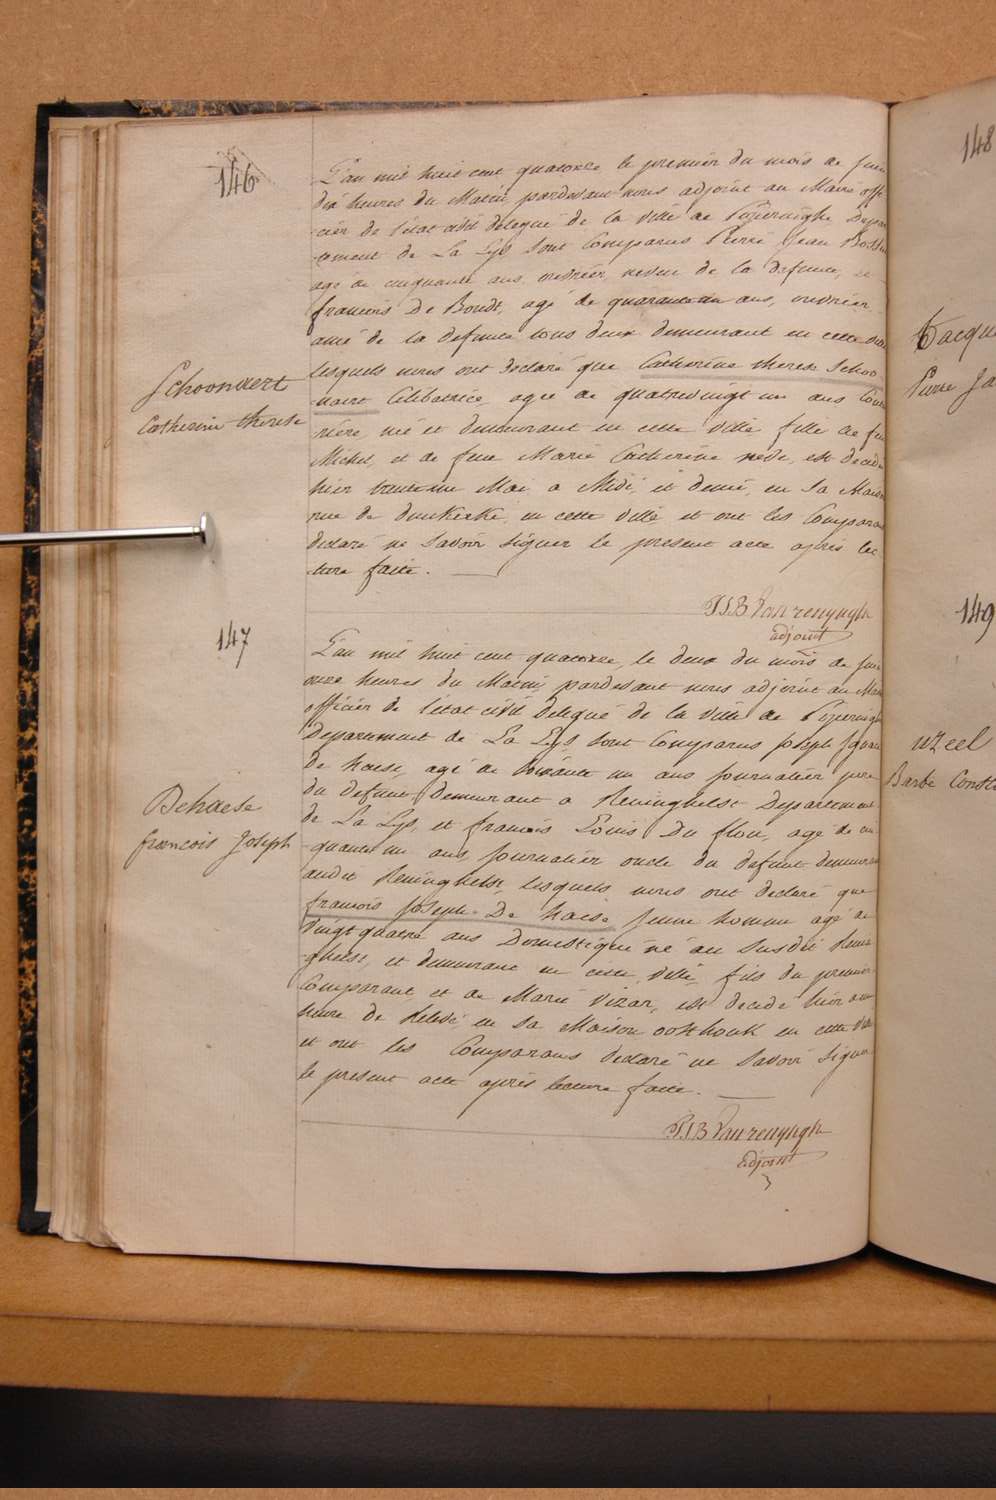 146
L'an mil huit cent quatorze le premier du mois de juin
dix heures du Matin, pardevant nous adjoint au Maire offi
cier de l'état civil delegué de la ville de Poperinghe Depar
tement de La Lys sont Comparus Pierre Jean
agé de cinquante ans, ouvrier, neveu de la defunte, et
francois De Bondt, agé de quarante un ans, ouvrier,
ami de la defunte tous deux demeurant en cette ville
lesquels nous ont declaré que Catherine therese Schoo
Schoonaert
Catherine therese
naert Célibatrice, agée de quatrevingt un ans Coutu
rière, née et demeurant en cette ville fille de feu
Michel, et de feue Marie Catherine rede, est decedée
hier trente un Mai a Midi et demie, en Sa Maison
rue de dunkerke, en cette ville et ont les Comparans
declaré ne Savoir Signer le present acte après lec
ture faite.
P.J.B Van renynghe
adjoint
147
L'an mil huit cent quatorze, le deux du mois de juin
onze heures du Matin, pardevant nous adjoint au Maire
officier de l'état civil delegué de la ville de Poperinghe
Departement de La Lys sont Comparus joseph Ignace
de haese, agé de soixante un ans journalier pere
du defunt Demeurant a Reninghelst Departement
Dehaese
francois Joseph
de La Lys, et francois Louis Du flou, agé de cin
quante un ans, journalier oncle du defunt demeurant
audit Reninghelst, lesquels nous ont declaré que
francois joseph De haese jeune homme agé de
vingt quatre ans Domestique né au Susdit Renin
ghelst, et demeurant en cette ville, fils du premier
Comparant et de Marie vizar, est decedé hier a une
heure de Relevé, en sa Maison oosthouk en cette ville
et ont les Comparans declaré ne Savoir Signer
le present acte après lecture faite.
P.J.B Van renynghe
Adjoint
148
Pierre Ja
149
uzeel
Barbe Consta